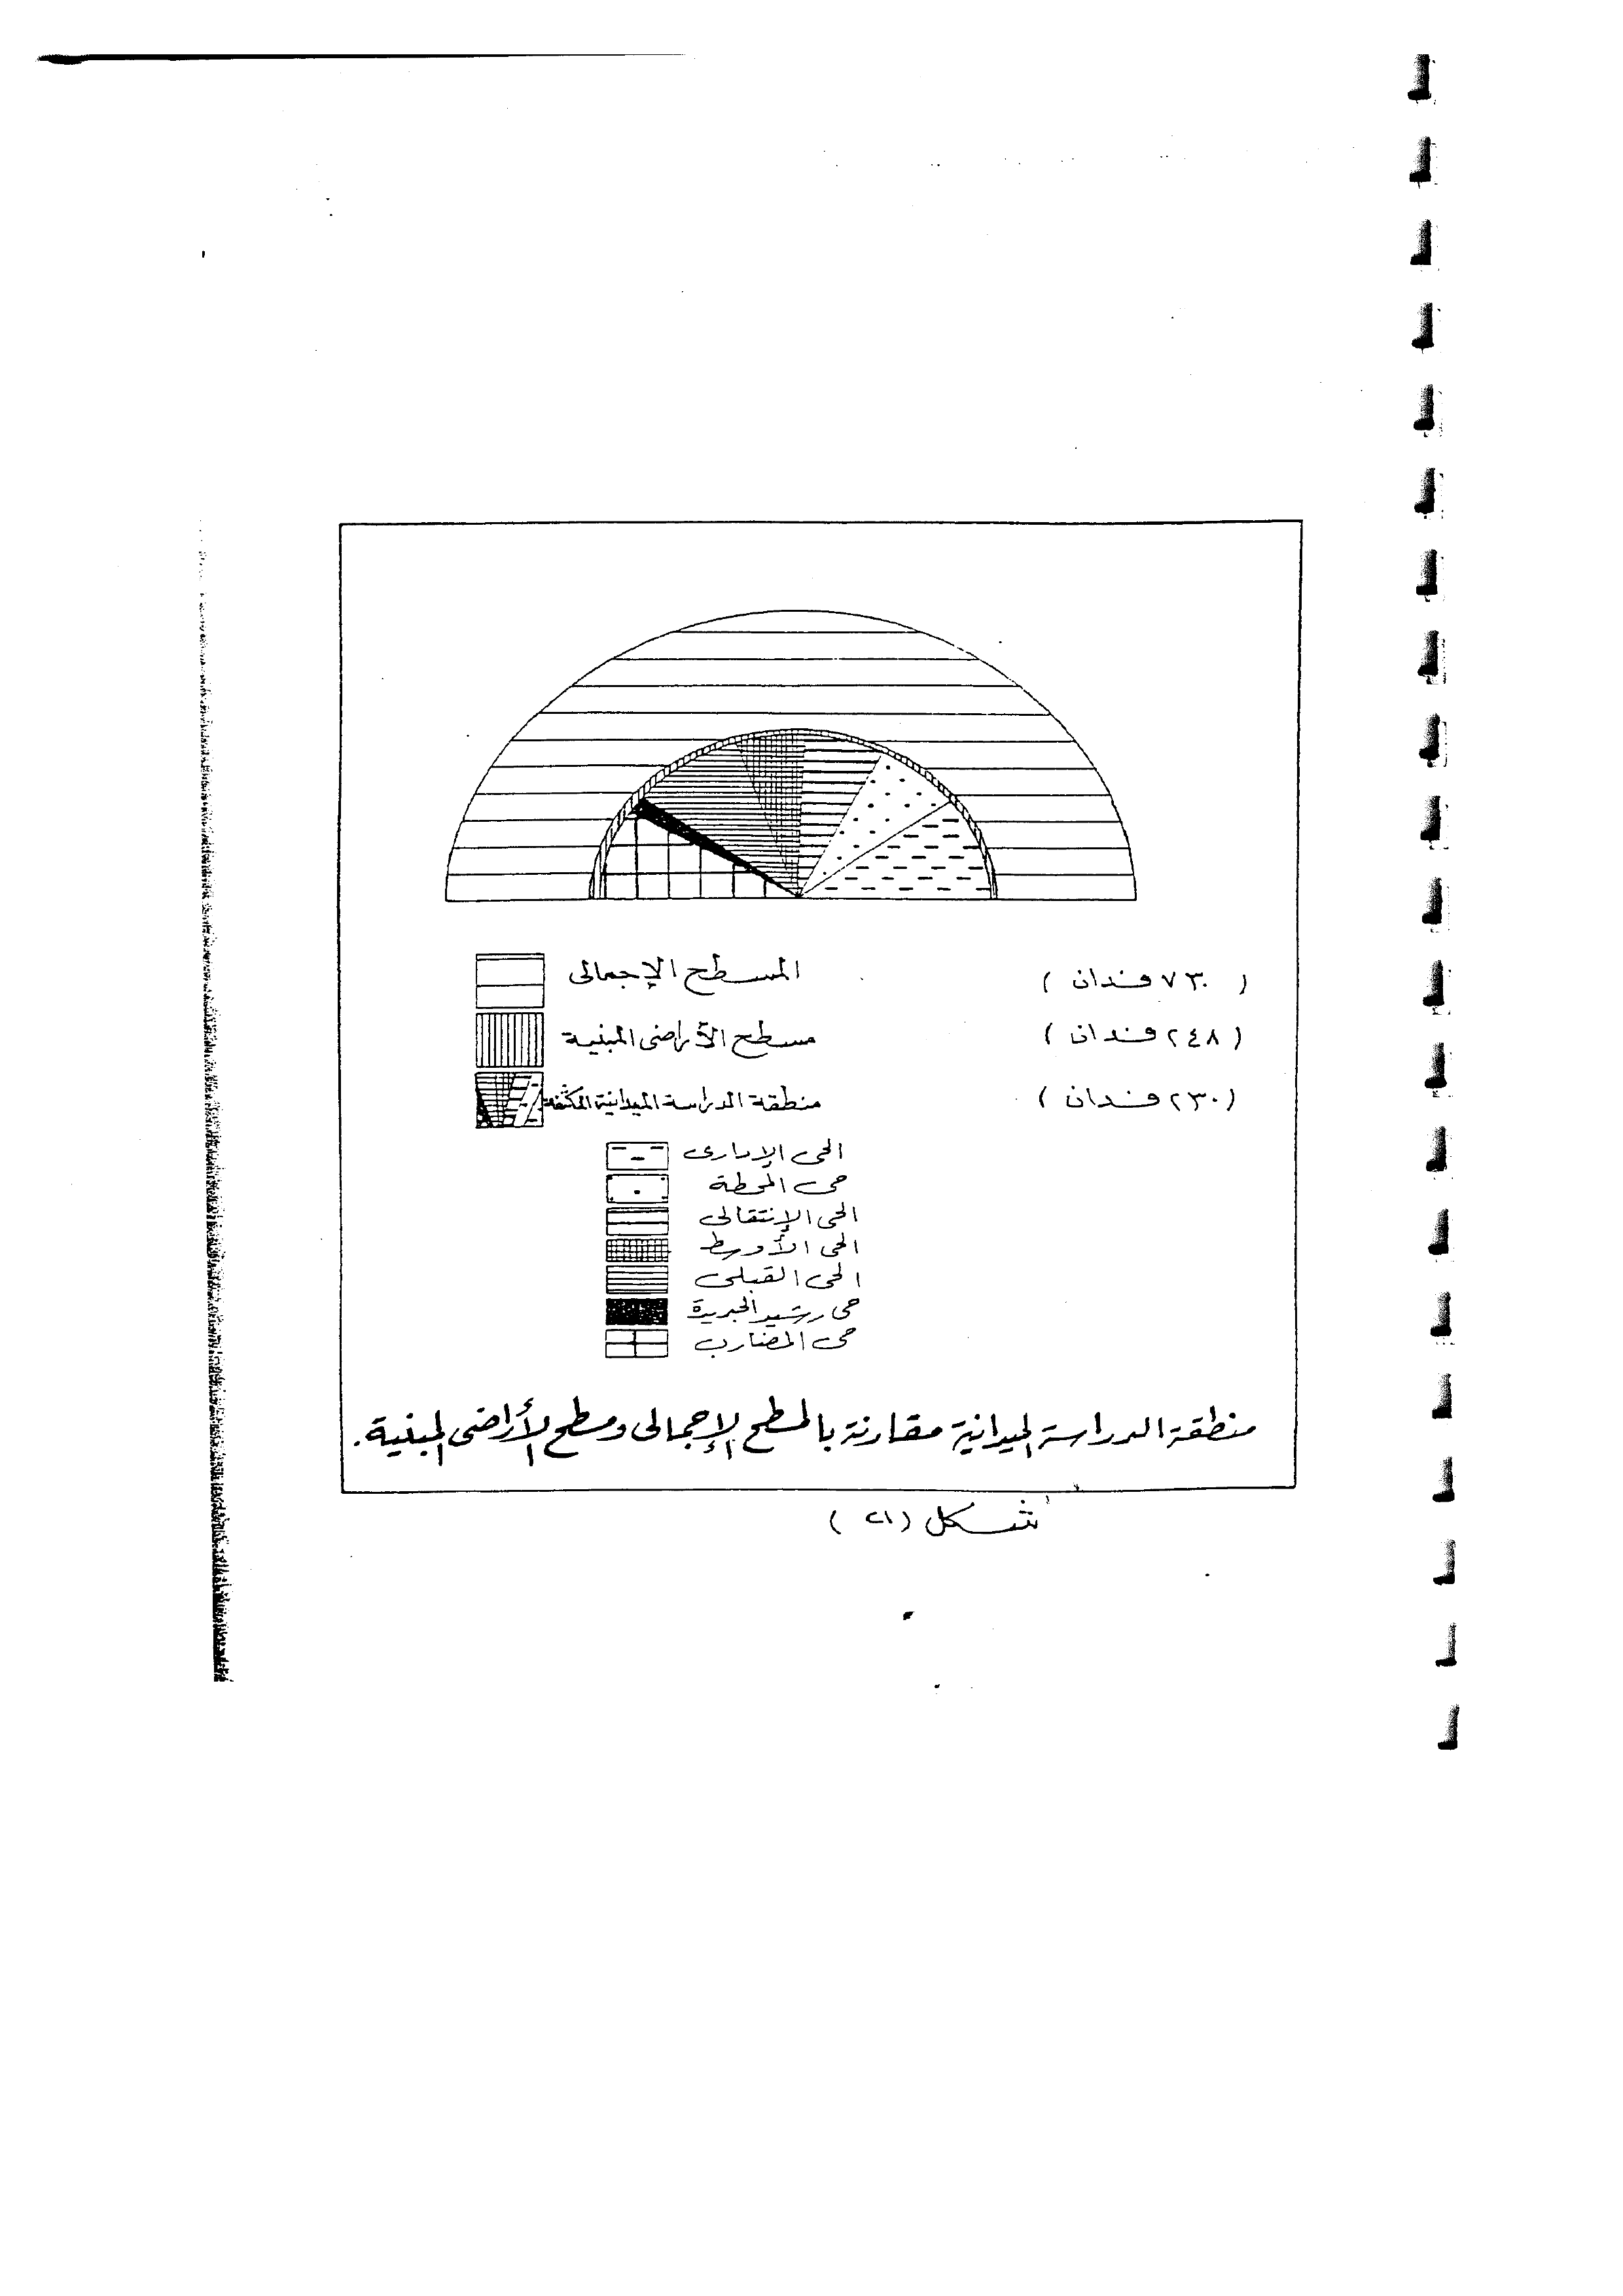 المسطح الإجمالى ( ٧٣٠ فندان )
مسطح الأراضى المبنية ( ٢٤٨ فندان )
منطقة الدراسة الميدانية المكثفة ( ٢٣٠ فندان )
الحى الإدارى
حى المحطة
الحى الإنتقالى
الحى الأوسط
الحى القبلى
حى رشيد الجديدة
حى المضارب
منطقة الدراسة الميدانية مقارنة بالمسطح الإجمالى ومسطح الأراضى المبنية.
شكل ( ٢١ )